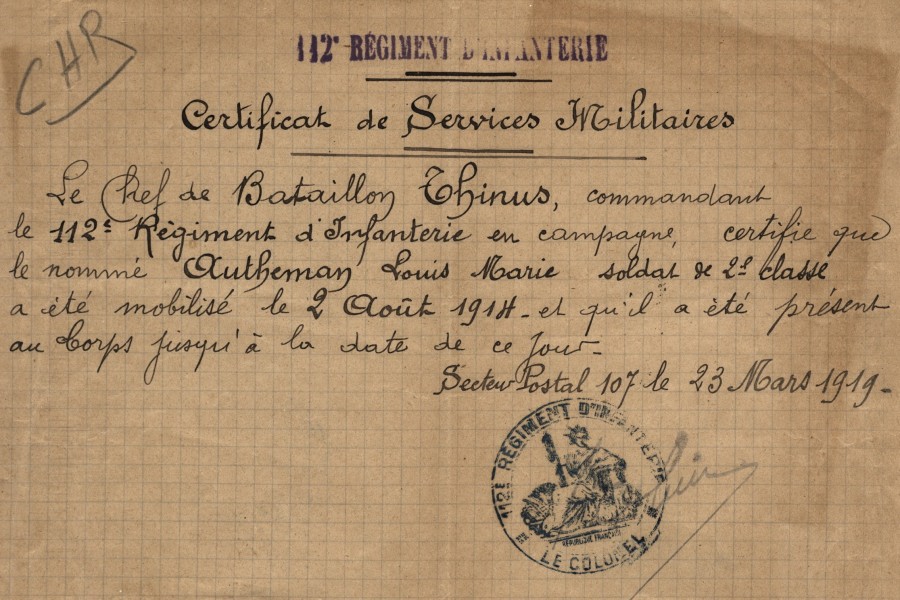 CHR
112e RÉGIMENT D'INFANTERIE
Certificat de Services Militaires
Le Chef de Bataillon Thinus, commandant
le 112e Régiment d'Infanterie en campagne, certifie que
le nommé Autheman Louis Marie soldat de 2e classe
a été mobilisé le 2 Août 1914 - et qu'il a été présent
au Corps jusqu'à la date de ce jour -
Secteur Postal 107 le 23 Mars 1919 -
112e RÉGIMENT D'INFANTERIE
RÉPUBLIQUE FRANÇAISE
LE COLONEL